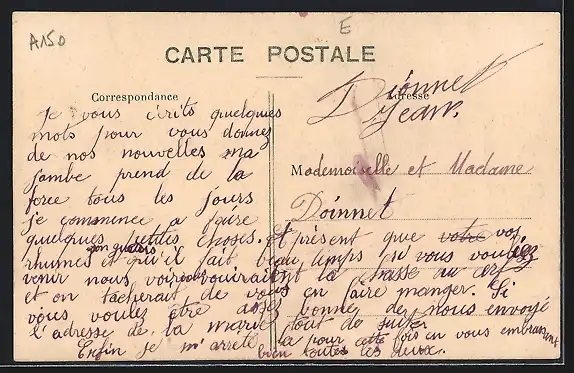 A150
E
CARTE POSTALE
Correspondance
Adresse
Dionnet
Jean.
Mademoiselle et Madame
Doinnet
Je vous écrits quelques
mots pour vous donnez
de nos nouvelles ma
jambe prend de la
force tous les jours
je commence a faire
quelques petites choses. et présent que votre vos
rhumes et qu'il fait beau temps si vous vouliez
venir nous voir la chasse au cerf
et on tâcherait de vous en faire manger. Si
vous voulez être assez bonne de nous envoyé
l'adresse de la marie tout de suite,
Enfin je m'arrete la pour cette fois en vous embrassant
bien toutes les deux.